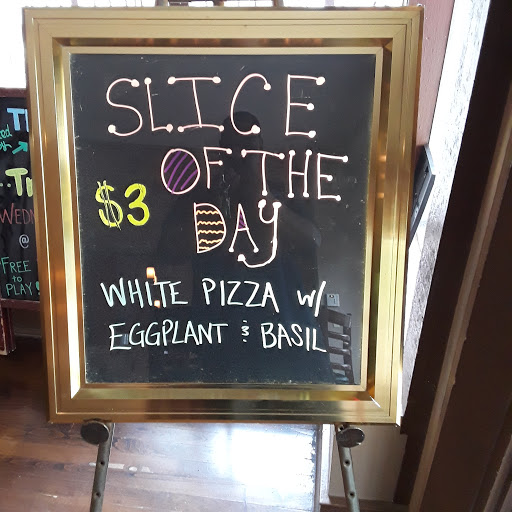 SLICE
OF THE
$3
DAY
WHITE PIZZA W/
EGGPLANT & BASIL
WEDN
@
FREE
TO
PLAY